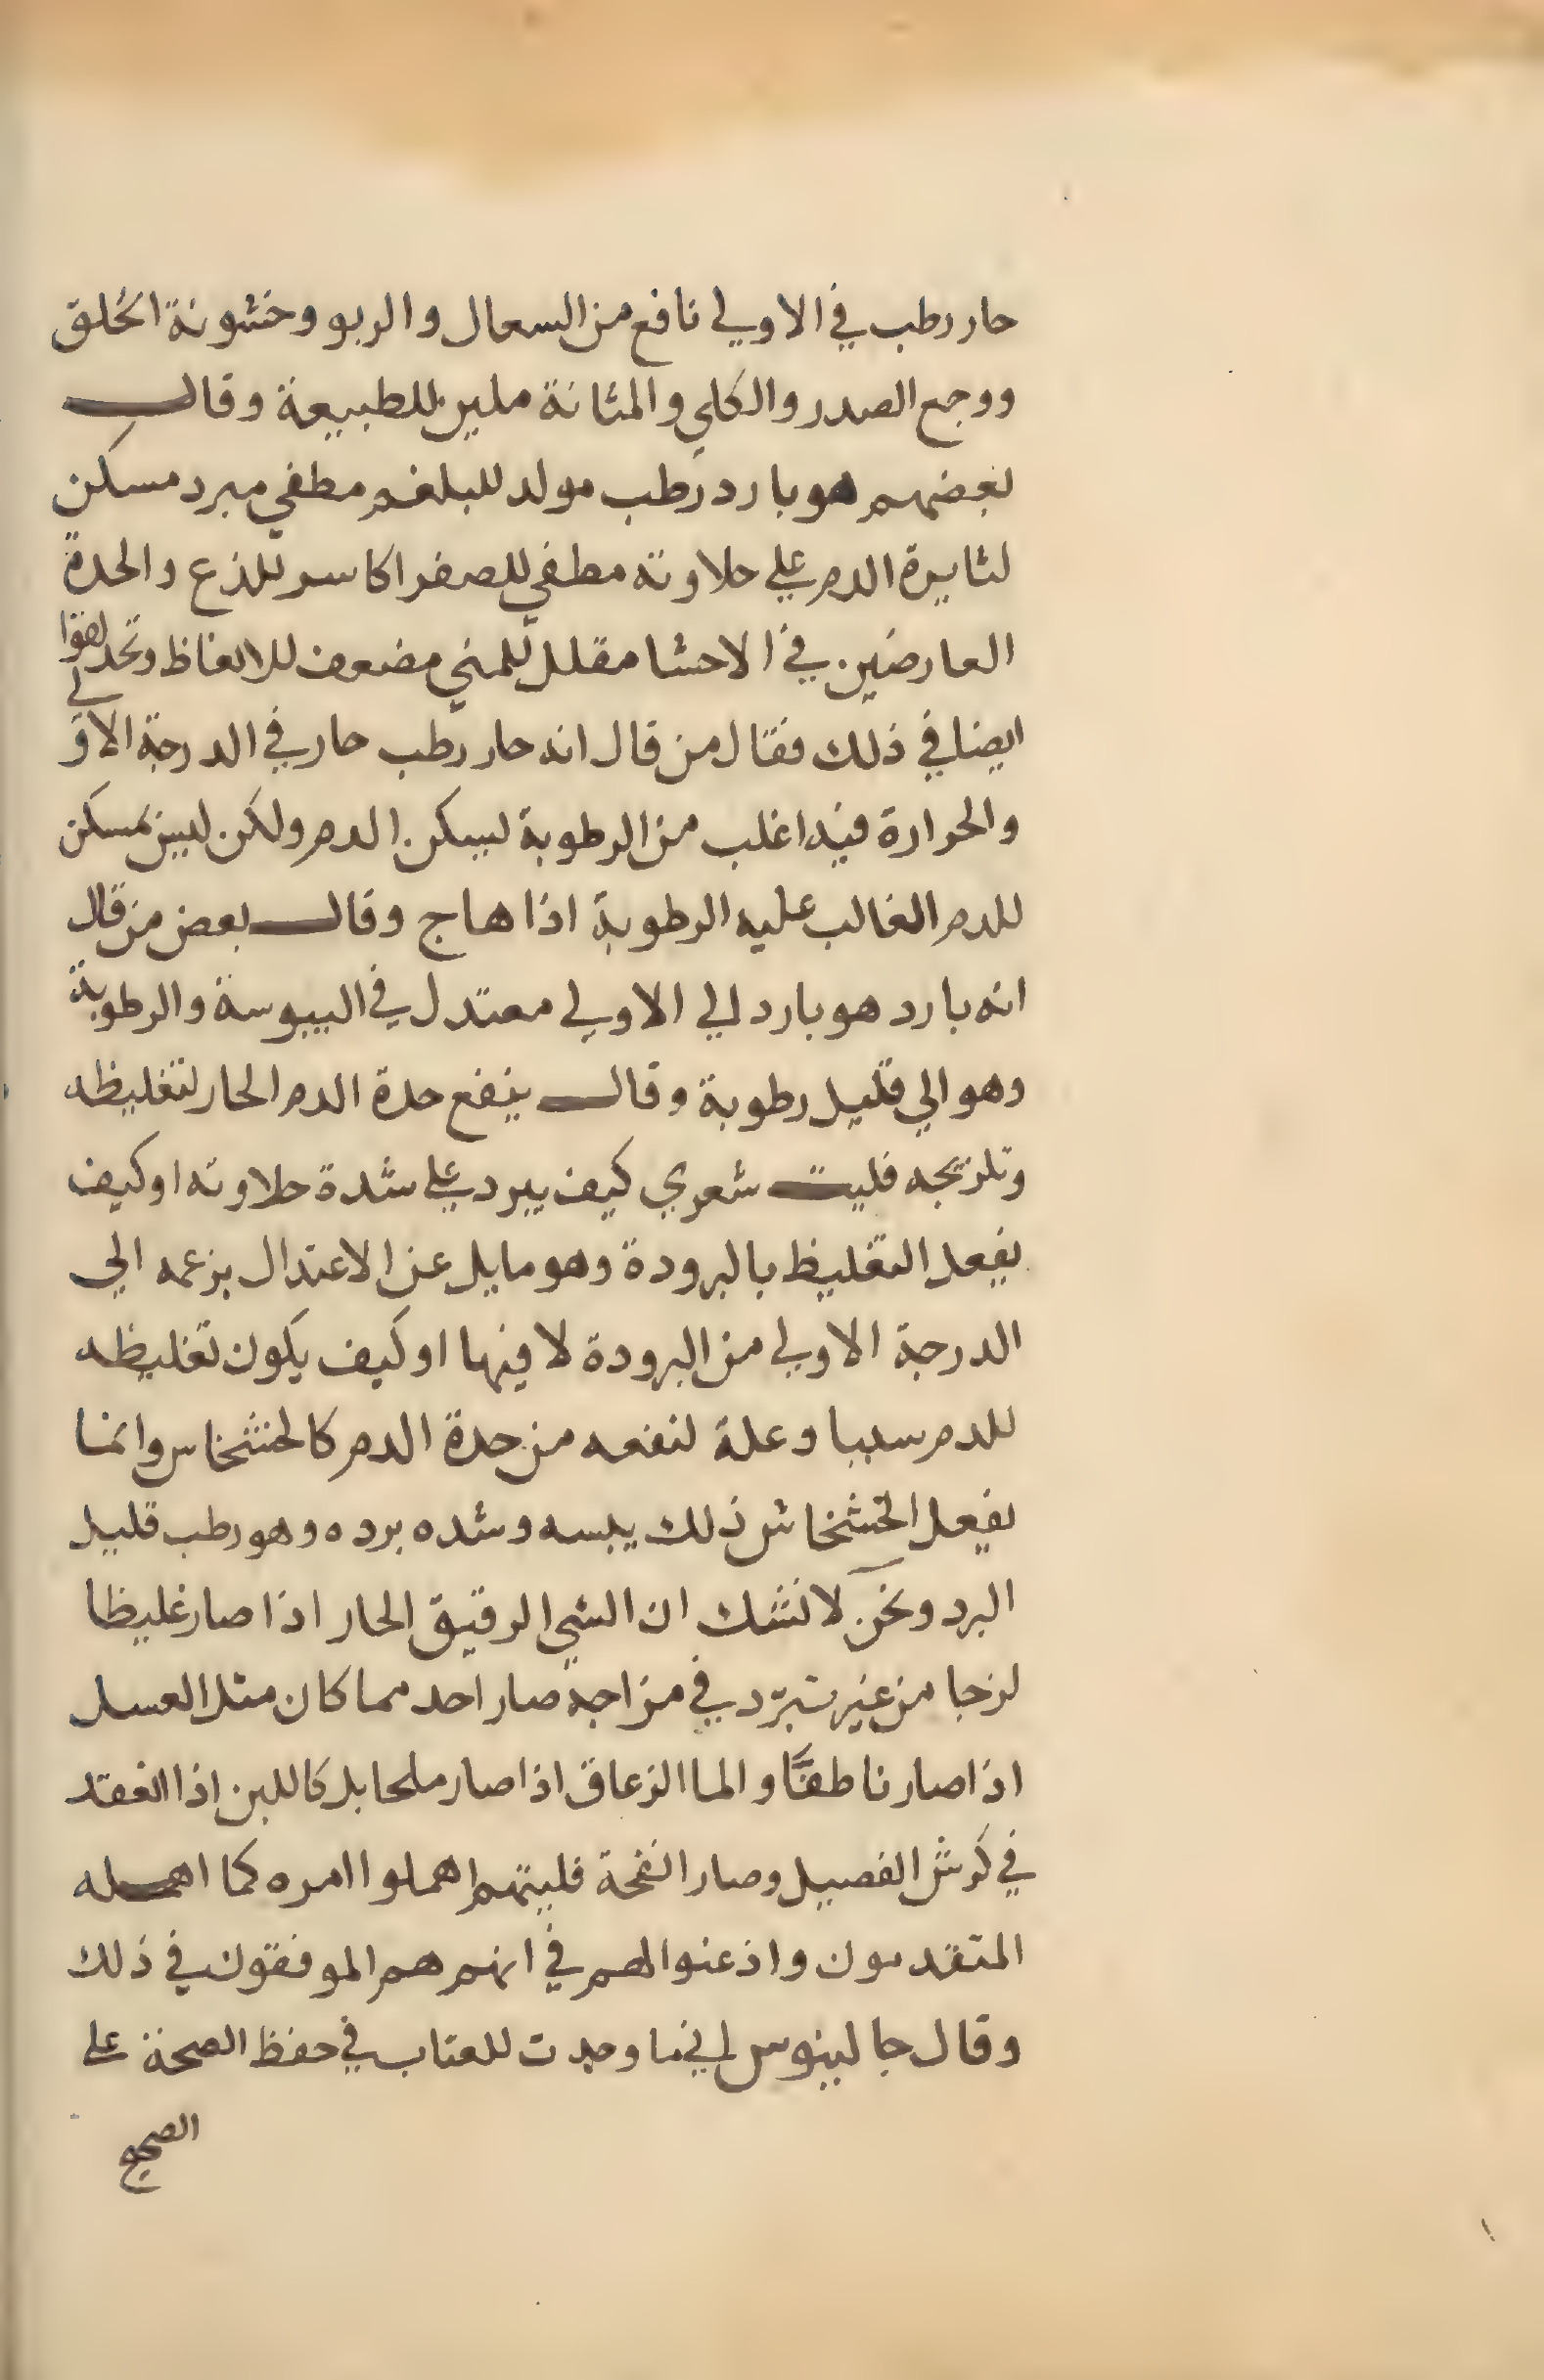 حار رطب في الاولي نافع من السعال والربو وخشونة الحلق
ووجع الصدر والكلي والمثانة ملين للطبيعة وقال
بعضهم هو بارد رطب مولد للبلغم مطفي مبرد مسكن
لثايرة الدم علي حلاوته مطفي للصفرا كاسر للذع والحدة
العارضين في الاحشا مقلل للمني مضعف للانعاظ وتحدلقوا
ايضا في ذلك فقال من قال انه حار رطب حار في الدرجة الاولي
والحرارة فيه اغلب من الرطوبة ليسكن الدم ولكن ليس بمسكن
للدم الغالب عليه الرطوبة اذا هاج وقال بعض من قال
انه بارد هو بارد الي الاولي معتدل في اليبوسة والرطوبة
وهو الي قليل رطوبة وقال ينفع حدة الدم الحار لتغليظه
وتلزيجه فليت شعري كيف يبرد علي شدة حلاوته او كيف
يفعل التغليظ بالبرودة وهو مايل عن الاعتدال بزعمه الي
الدرجة الاولي من البرودة لا فيها او كيف يكون تغليظه
للدم سببا وعلة لنفعه من حدة الدم كالخشخاس وانما
يفعل الخشخاش ذلك يبسه وشده برده وهو رطب قليل
البرد ونحن لا نشك ان الشي الرقيق الحار اذا صار غليظا
لزجا من غير تبرّد في مزاجة صار احد مما كان مثل العسل
اذا صار ناطفًا والما الزعاق اذا صار ملحا بل كاللبن اذا انعقد
في كرش الفصيل وصار انفحة فليتهم اهملوا امره كما اهمله
المتقدمون واذعنوا لهم في انهم هم الموفقون في ذلك
وقال جالينوس اني ما وجدت للعناب في حفظ الصحة علي
الصحيح